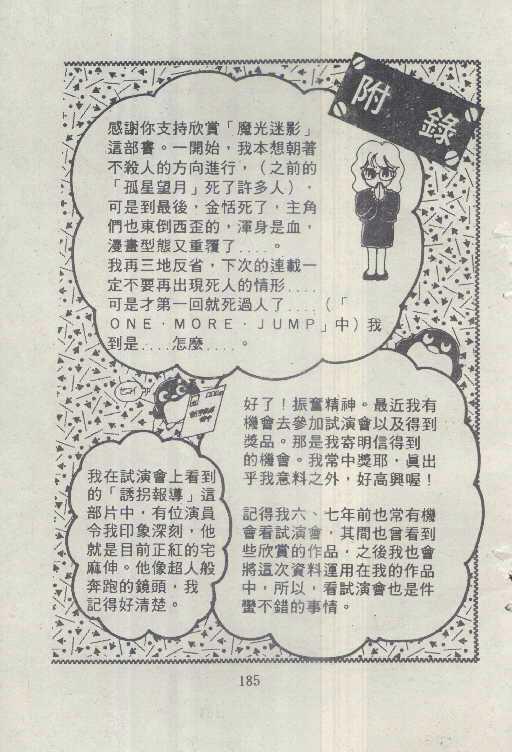 附錄
感謝你支持欣賞「魔光迷影」
這部書。一開始，我本想朝著
不殺人的方向進行，（之前的
「孤星望月」死了許多人），
可是到最後，金恬死了，主角
們也東倒西歪的，渾身是血，
漫畫型態又重覆了....。
我再三地反省，下次的連載一
定不要再出現死人的情形....
可是才第一回就死過人了....（「
ONE·MORE·JUMP」中）我
到是....怎麼....。
好了！振奮精神。最近我有
機會去參加試演會以及得到
獎品。那是我寄明信得到
的機會。我常中獎耶，眞出
乎我意料之外，好高興喔！
記得我六、七年前也常有機
會看試演會，其間也曾看到
些欣賞的作品，之後我也會
將這次資料運用在我的作品
中，所以，看試演會也是件
蠻不錯的事情。
我在試演會上看到
的「誘拐報導」這
部片中，有位演員
令我印象深刻，他
就是目前正紅的宅
麻伸。他像超人般
奔跑的鏡頭，我
記得好清楚。
185